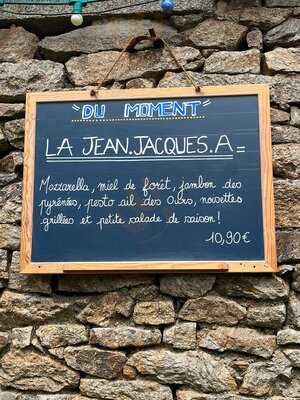 "DU MOMENT"
LA JEAN.JACQUES.A
Mozzarella, miel de forêt, jambon des
pyrénées, pesto ail des Ours, noisettes
grillées et petite salade de saison !
10,90€